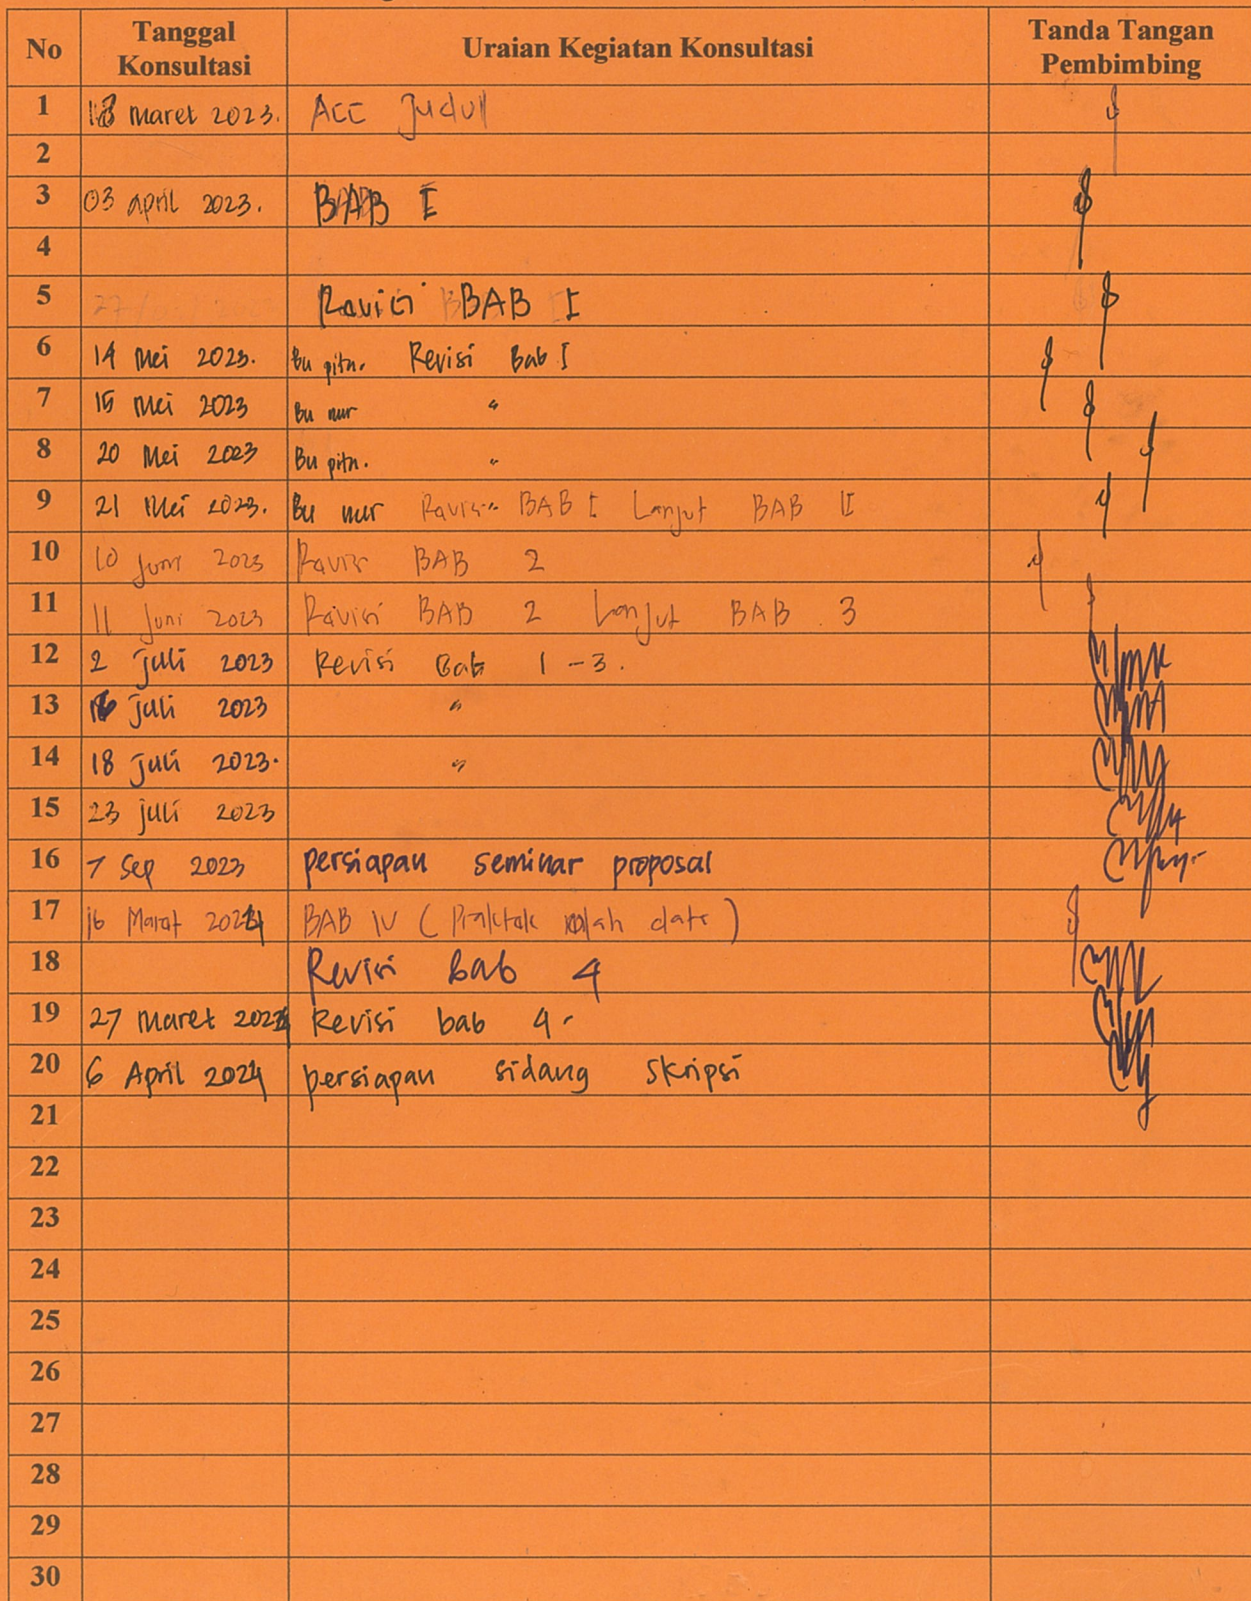 No Tanggal Konsultasi Uraian Kegiatan Konsultasi Tanda Tangan Pembimbing
1 18 Maret 2023. ACC Judul
2
3 03 april 2023. BAB I
4
5 Revisi BAB I
6 14 Mei 2023. Bu pita. Revisi Bab I
7 15 Mei 2023 Bu nur "
8 20 Mei 2023 Bu pita. "
9 21 Mei 2023. Bu nur Revisi BAB I Lanjut BAB II
10 10 Juni 2023 Revisi BAB 2
11 11 Juni 2023 Revisi BAB 2 Lanjut BAB 3
12 2 juli 2023 Revisi Bab 1-3.
13 juli 2023 "
14 18 juli 2023. "
15 23 juli 2023
16 7 Sep 2023 persiapan seminar proposal
17 16 Maret 2024 BAB IV ( Praktek olah data )
18 Revisi Bab 4
19 27 Maret 2024 Revisi bab 4.
20 6 April 2024 persiapan sidang skripsi
21
22
23
24
25
26
27
28
29
30